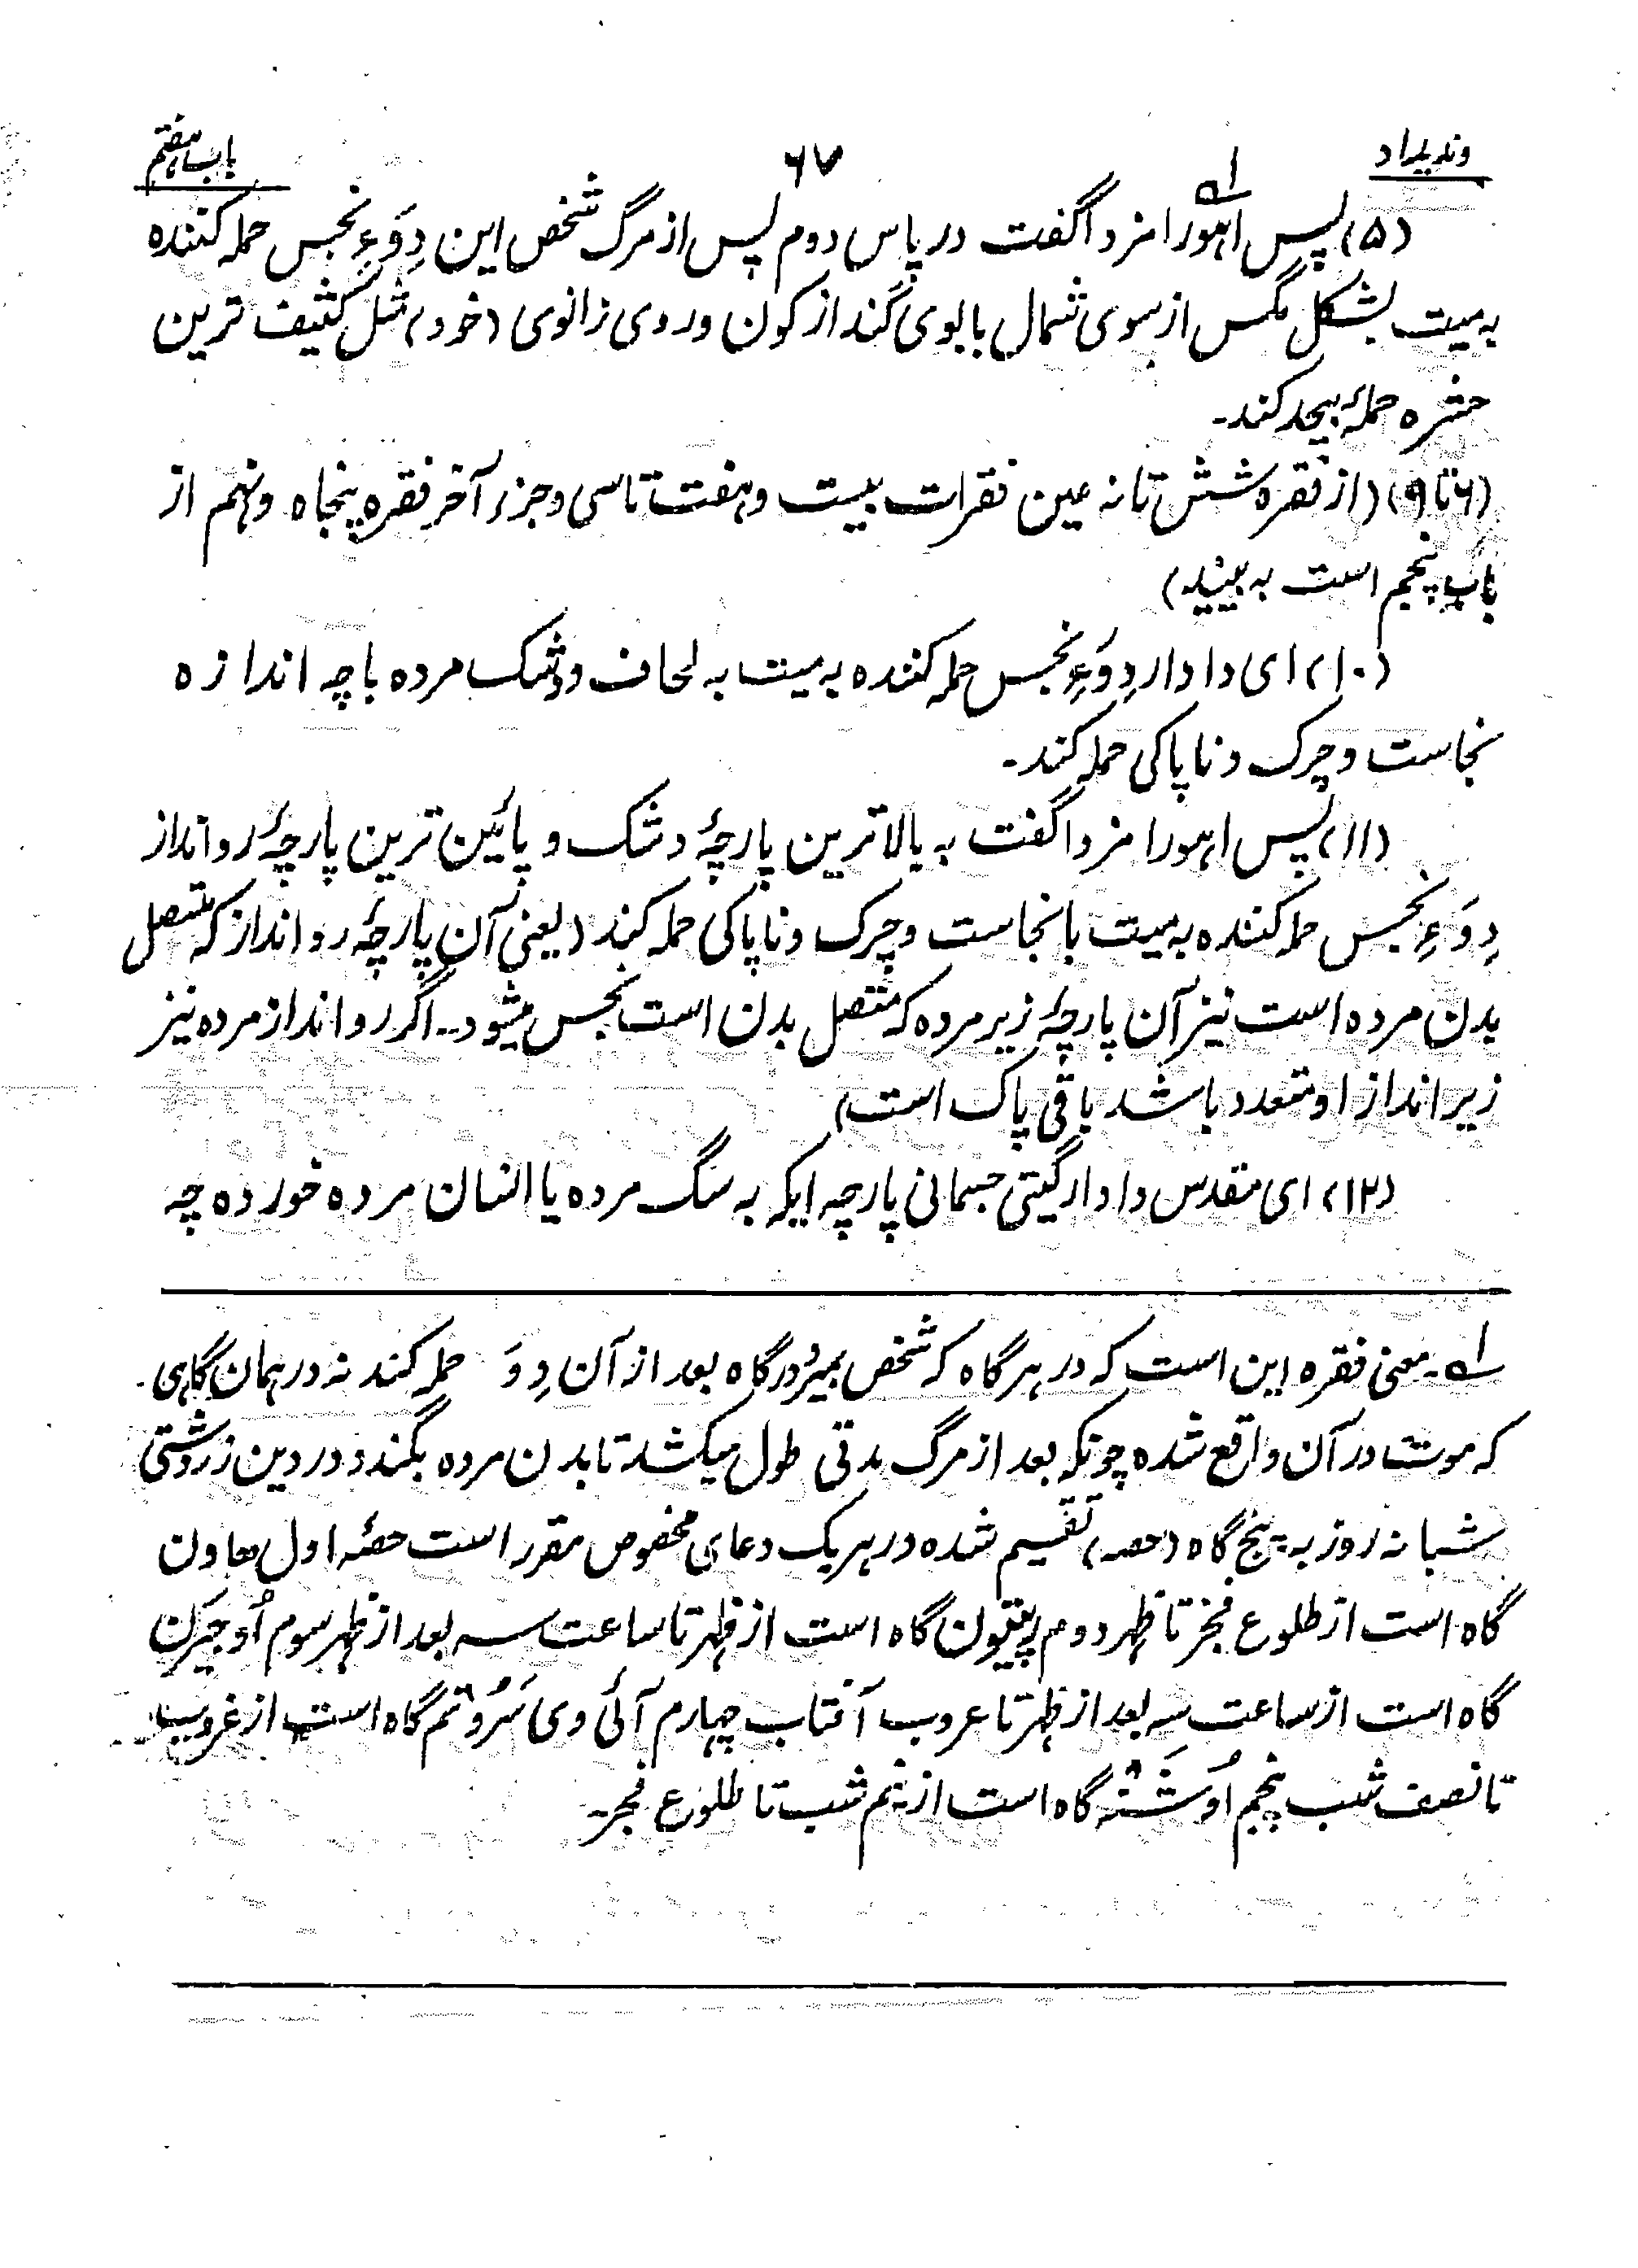 وندیداد ۶۷ باب هفتم
(۵) پس اهورا مزدا گفت در پاس دوم پس از مرگ شخص این دِوَءِ نجس حمله کننده
به میت بشکل مگس از سوی شمال با بوی گند از کون و روی زانوی (خود) مثل کثیف ترین
حشره حملۀ بیحد کند۔
(۶ تا ۹) (از فقره شش تا نه عین فقرات بیست و هفت تا سی و جزء آخر فقره پنجاه و نهم از
باب پنجم است به بینید)
(۱۰) ای دادار دِوَءِ نجس حمله کننده به میت به لحاف و دشک مرده با چه اندازه
نجاست و چرک و ناپاکی حمله کند۔
(۱۱) پس اهورا مزدا گفت به بالاترین پارچۀ دشک و پائین ترین پارچۀ روانداز
دِوَءِ نجس حمله کننده به میت با نجاست و چرک و ناپاکی حمله کند (یعنی آن پارچۀ روانداز که متصل
بدن مرده است نیز آن پارچۀ زیر مرده که متصل بدن است نجس میشود۔۔ اگر روانداز مرده نیز
زیر انداز او متعدد باشد باقی پاک است)
(۱۲) ای مقدس دادار گیتی جسمانی پارچه ایکه به سگ مرده یا انسان مرده خورده چه
۱ه۔ معنی فقره این است که در هر گاه که شخص بمیرد در گاه بعد از آن دِوَ حمله کند نه در همان گاهی
که موت در آن واقع شده چونکه بعد از مرگ مدتی طول میکشد تا بدن مرده بگندد در دین زردشتی
شبانه روز به پنج گاه (حصه) تقسیم شده در هر یک دعای مخصوص مقرر است حصۀ اول هاون
گاه است از طلوع فجر تا ظهر دوم رپیتون گاه است از ظهر تا ساعت سه بعد از ظهر سوم اُوجیَرن
گاه است از ساعت سه بعد از ظهر تا غروب آفتاب چهارم آئی وی سَرُوتم گاه است از غروب
تا نصف شب پنجم اُوشَتَه گاه است از نیم شب تا طلوع فجر۔